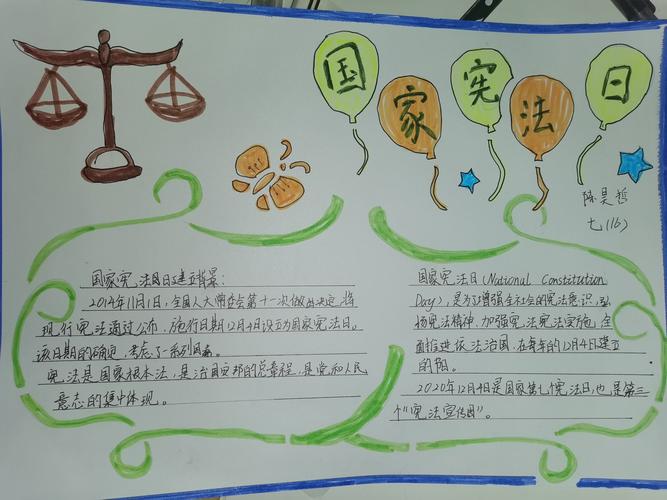 国家宪法日
陈昊哲
七(16)
国家宪法日建立背景:
2014年11月1日,全国人大常委会第十一次做出决定,将
现行宪法通过公布,施行日期12月4日设立为国家宪法日。
该日期的确定,考虑了一系列因素。
宪法是国家根本法,是治国安邦的总章程,是党和人民
意志的集中体现。
国家宪法日(National Constitution
Day),是为了增强全社会的宪法意识,弘
扬宪法精神,加强宪法宪法实施,全
面推进依法治国,在每年的12月4日建立
的阳。
2020年12月4日是国家第七个宪法日,也是第三
个“宪法宣传周”。